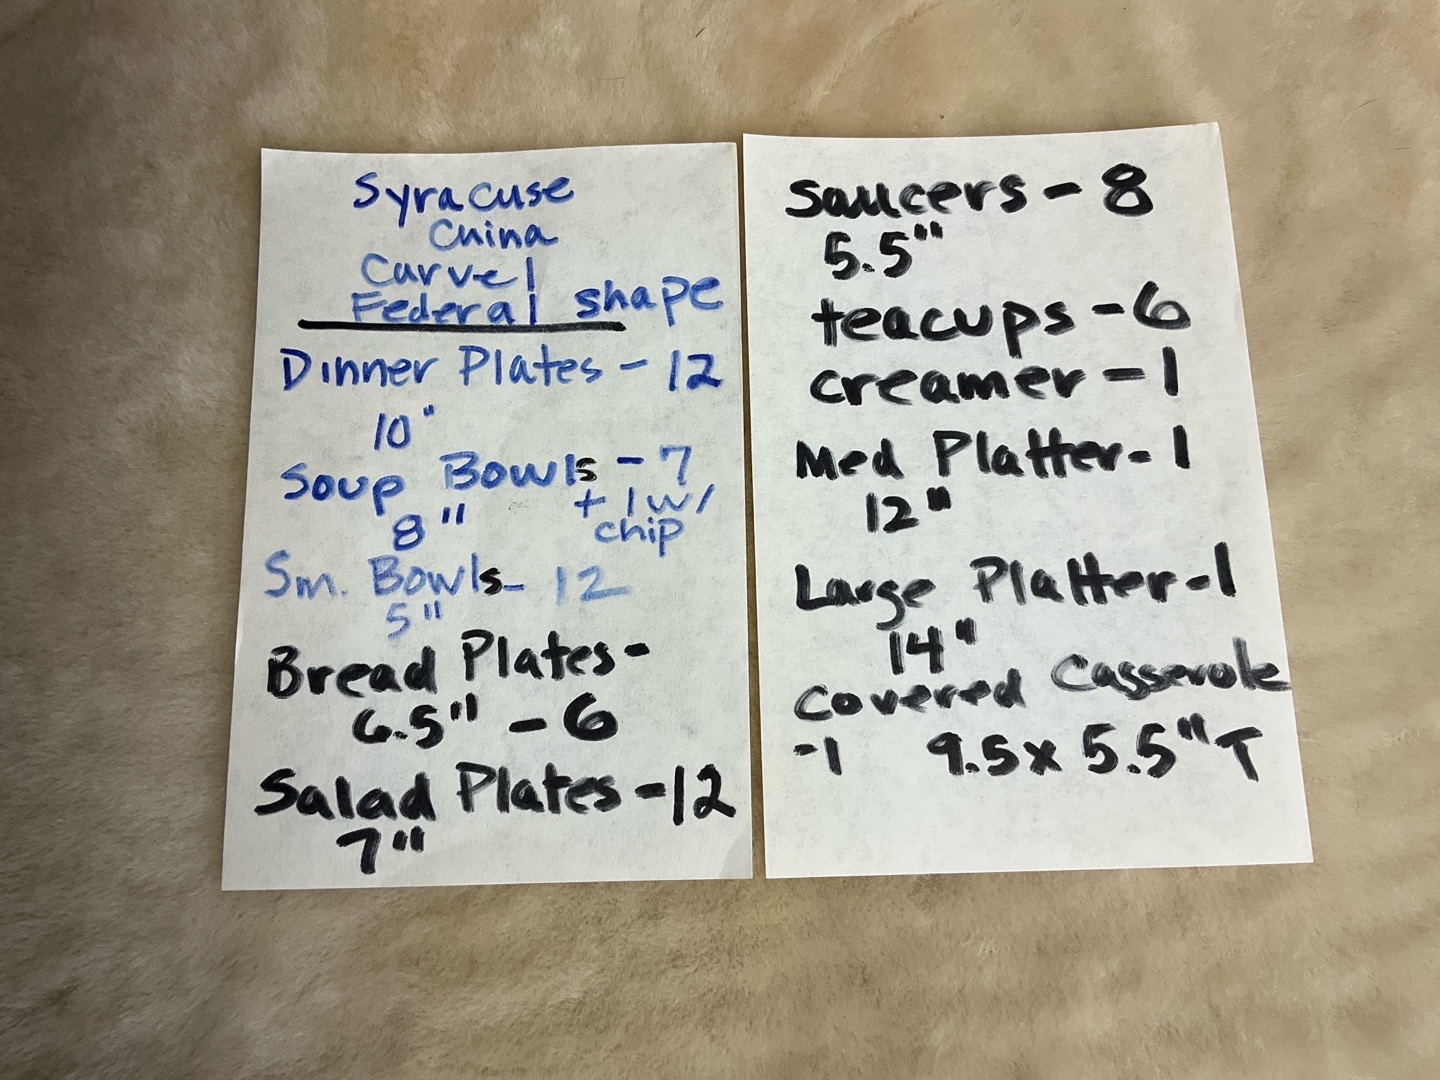 Syracuse
China
Carvel
Federal shape
Dinner Plates - 12
10"
Soup Bowls - 7
8" + 1 w/
chip
Sm. Bowls - 12
5"
Bread Plates -
6.5" - 6
Salad Plates - 12
7"
Saucers - 8
5.5"
teacups - 6
creamer - 1
Med Platter - 1
12"
Large Platter - 1
14"
Covered Casserole
- 1 9.5 x 5.5" T